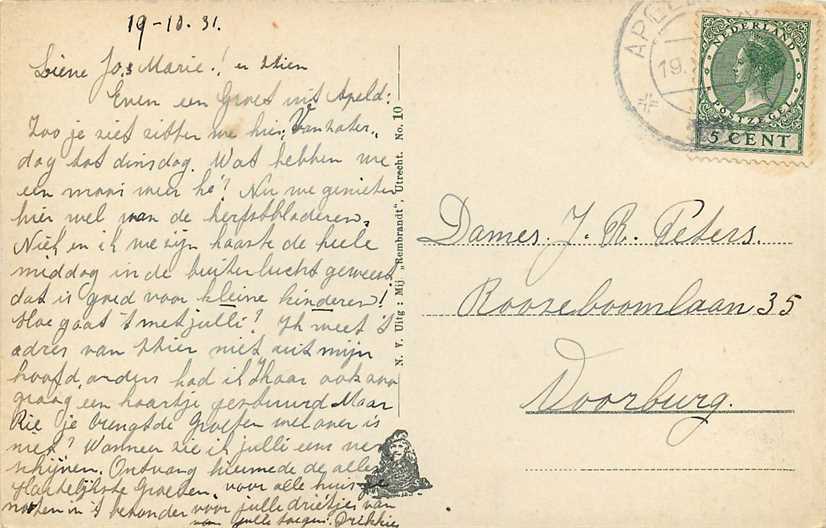 19-10.31.
Lieve Jo, Marie! en Stien
Even een Groet uit Apeld:
Zoo je ziet zitten we hier, Van zater-
dag tot dinsdag. Wat hebben we
een mooi weer hé? Nu we genieten
hier wel van de herfstbladeren.
Niek en ik we zijn haast de heele
middag in de buitenlucht geweest
dat is goed voor kleine kinderen!
Hoe gaat 't met julli? Ik weet 't
adres van niet uit mijn
hoofd, anders had ik haar ook zoo
graag een kaartje gestuurd Maar
Rie je brengt de Groeten wel over is
niet? Wanneer zie ik julli eens ver
schijnen. Ontvang hiermede de aller
Hartelijkste Groeten, voor alle huisge
nooten in 't bizonder voor jullie drietjes van
van jullie Drikkie
N. V. Uitg : Mij „Rembrandt", Utrecht. No. 10
APELD
19.
NEDERLAND
POSTZEGEL
5 CENT
Dames. J. R. Peters.
Rooseboomlaan 35
Voorburg.